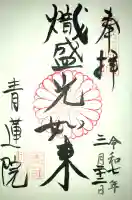 奉拝
令和七年
三月二十一日
熾盛光如来
青蓮院